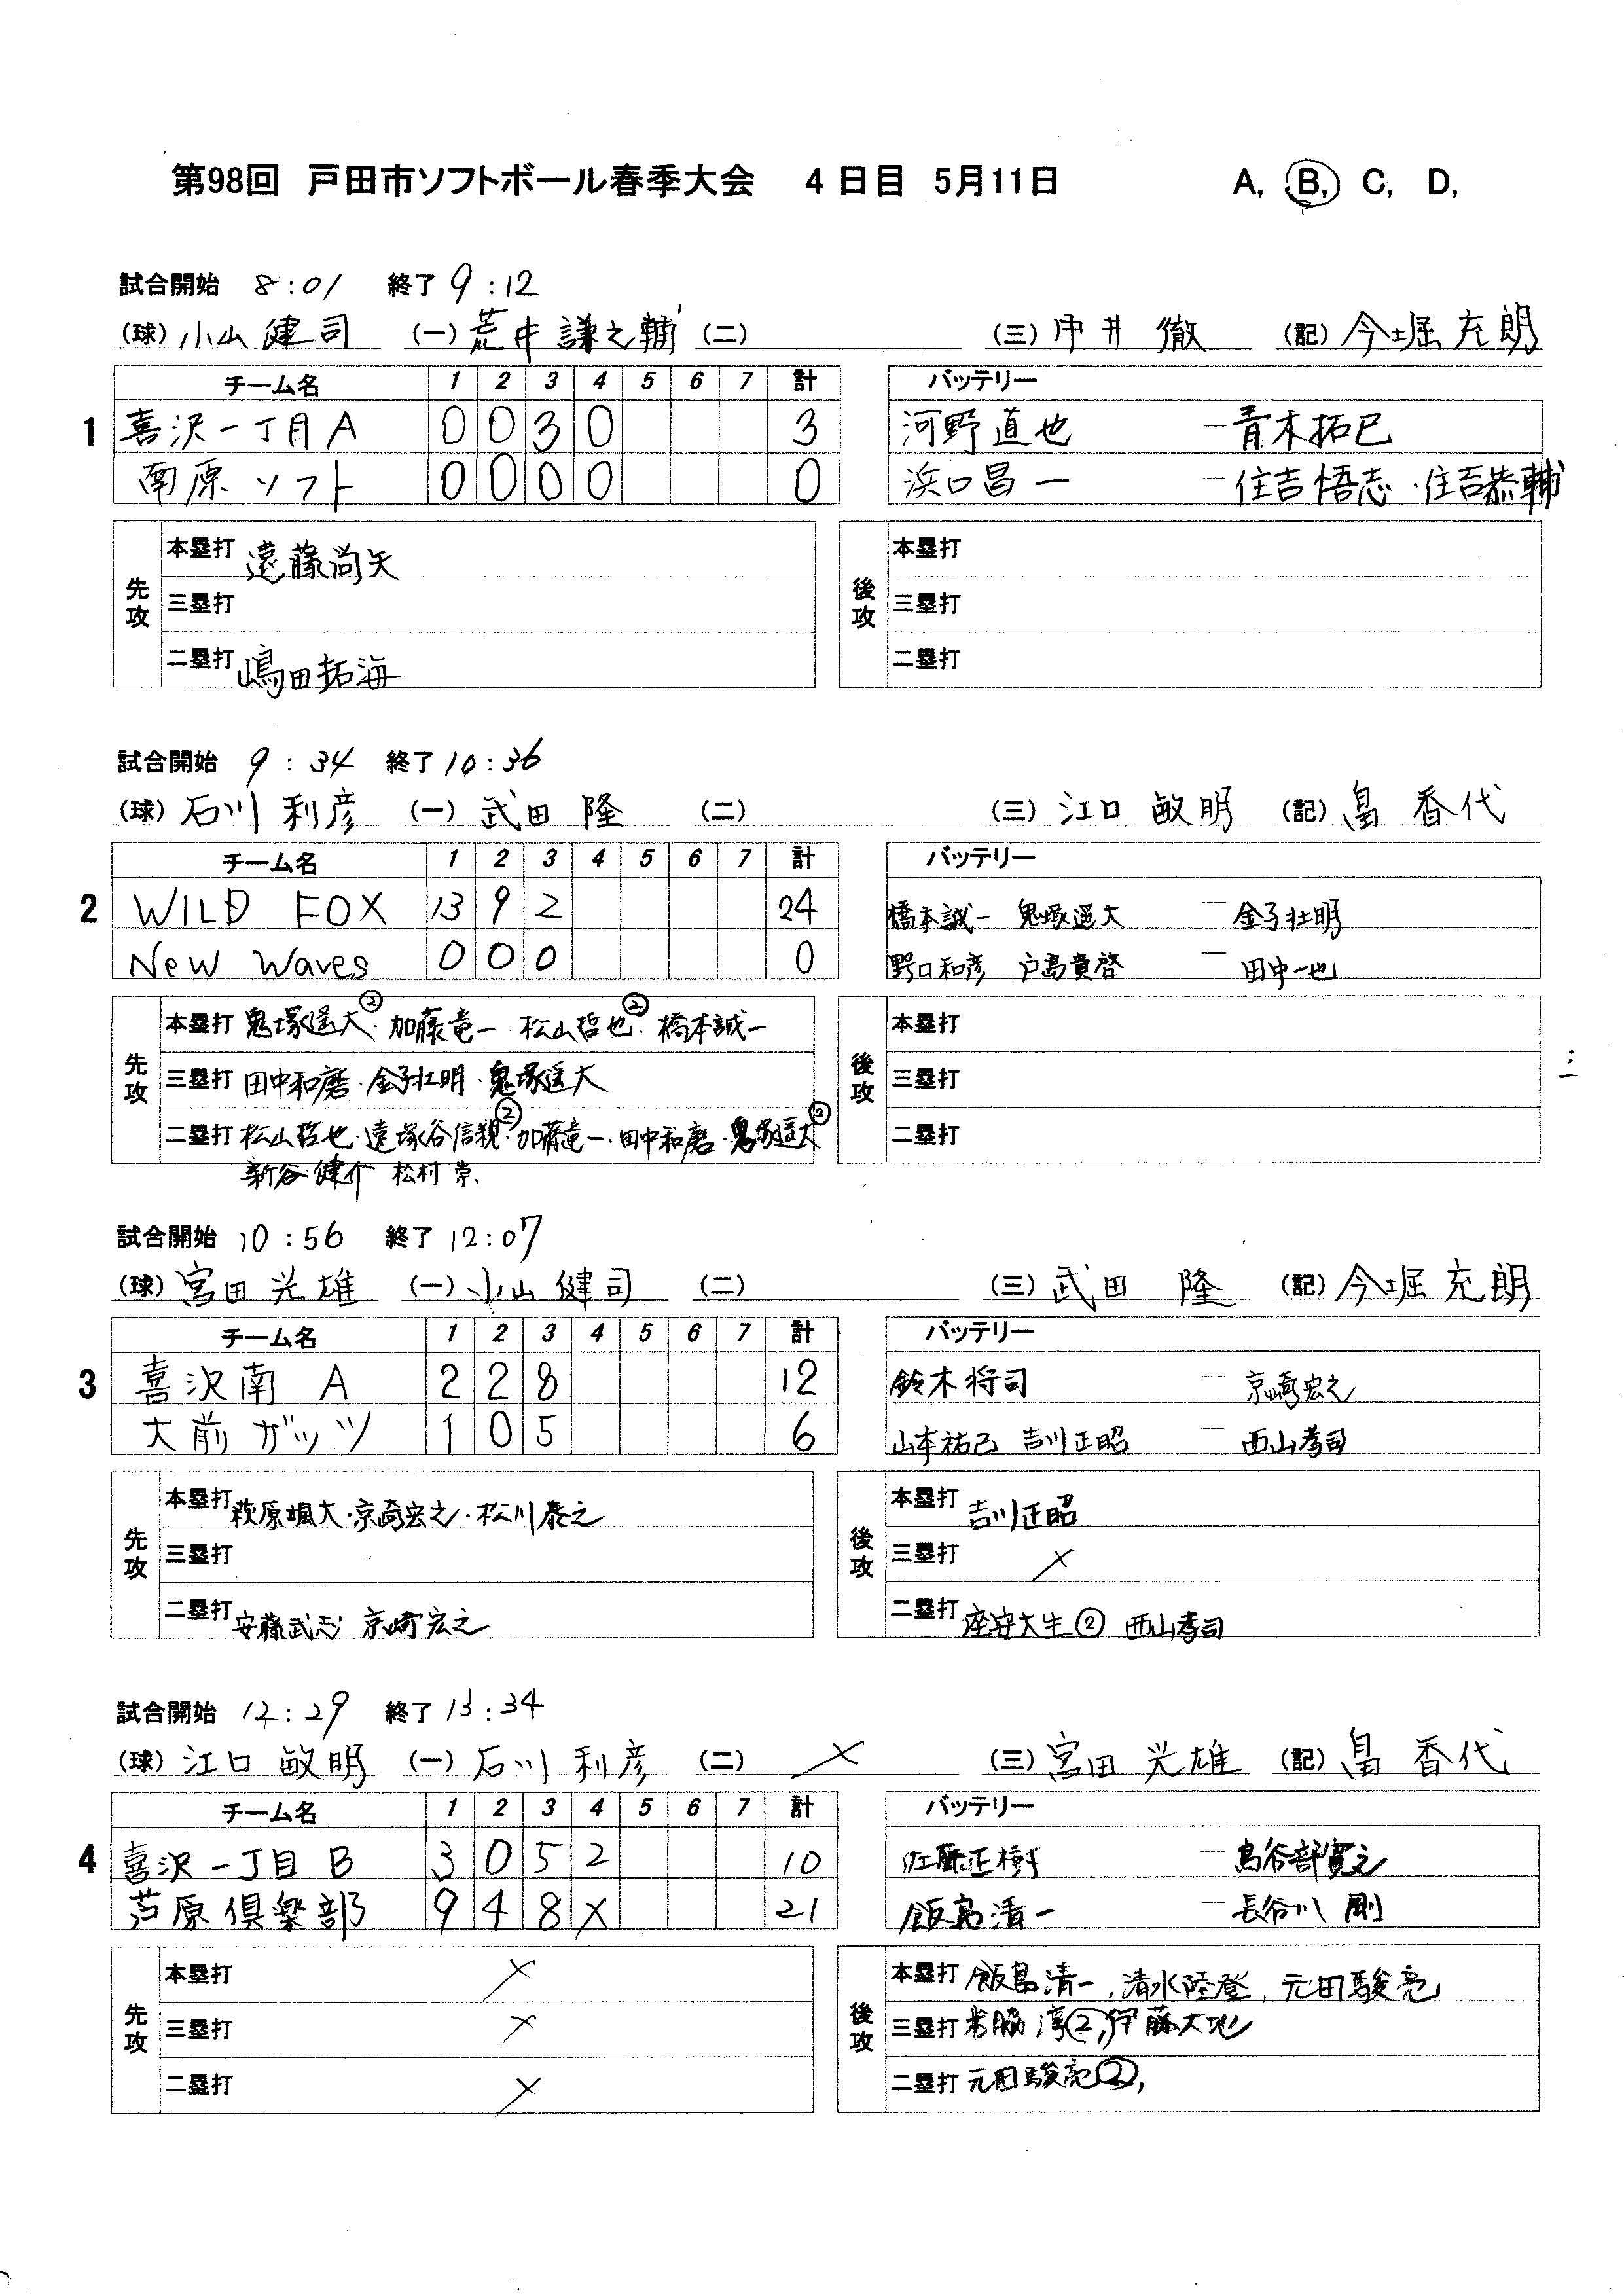 第98回 戸田市ソフトボール春季大会 4日目 5月11日 A, B, C, D,
試合開始 8:01 終了 9:12
(球) 小山 健司 (一) 荒井 謙之輔 (二) (三) 中井 徹 (記) 今堀 充朗
チーム名 1 2 3 4 5 6 7 計 バッテリー
1 喜沢一丁目A 0 0 3 0 3 河野直也 - 青木拓巳
南原ソフト 0 0 0 0 0 浜口昌一 - 住吉悟志・住吉恭輔
先攻 本塁打 遠藤尚矢 後攻 本塁打
三塁打 三塁打
二塁打 嶋田拓海 二塁打
試合開始 9:34 終了 10:36
(球) 石川 利彦 (一) 武田 隆 (二) (三) 江口 敏明 (記) 畠 香代
チーム名 1 2 3 4 5 6 7 計 バッテリー
2 WILD FOX 13 9 2 24 橋本誠一 鬼塚遥大 - 金子壮明
New Waves 0 0 0 0 野口和彦 戸島貴啓 - 田中一也
先攻 本塁打 鬼塚遥大②・加藤竜一・松山哲也②・橋本誠一 後攻 本塁打
三塁打 田中和磨・金子壮明・鬼塚遥大 三塁打
二塁打 松山哲也・遠塚谷信親②・加藤竜一・田中和磨・鬼塚遥大② 二塁打
新谷健介 松村崇
試合開始 10:56 終了 12:07
(球) 宮田 光雄 (一) 小山 健司 (二) (三) 武田 隆 (記) 今堀 充朗
チーム名 1 2 3 4 5 6 7 計 バッテリー
3 喜沢南 A 2 2 8 12 鈴木将司 - 京崎宏之
大前ガッツ 1 0 5 6 山本祐己 吉川正昭 - 西山孝司
先攻 本塁打 萩原颯大・京崎宏之・松川泰之 後攻 本塁打 吉川正昭
三塁打 三塁打 ×
二塁打 安藤武志 京崎宏之 二塁打 座安大生② 西山孝司
試合開始 12:29 終了 13:34
(球) 江口 敏明 (一) 石川 利彦 (二) × (三) 宮田 光雄 (記) 畠 香代
チーム名 1 2 3 4 5 6 7 計 バッテリー
4 喜沢一丁目B 3 0 5 2 10 佐藤正樹 - 鳥谷部寛之
芦原倶楽部 9 4 8 X 21 飯島清一 - 長谷川 剛
先攻 本塁打 × 後攻 本塁打 飯島清一, 清水陸登, 元田駿亮
三塁打 × 三塁打 米脇淳②, 伊藤大地
二塁打 × 二塁打 元田駿亮②,